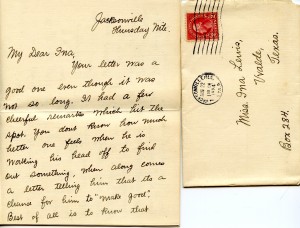 Jacksonville
Thursday Nite.
My Dear Ina,
Your letter was a
good one even though it was
not so long. It had a few
cheerful remarks which hit the
spot. You dont know how much
better one feels when he is
walking his head off to find
out something, when along comes
out a letter telling him that its a
chance for him to "make good".
Best of all is to know that
Miss Ina Lewis,
Uvalde,
Texas.
Box 284.